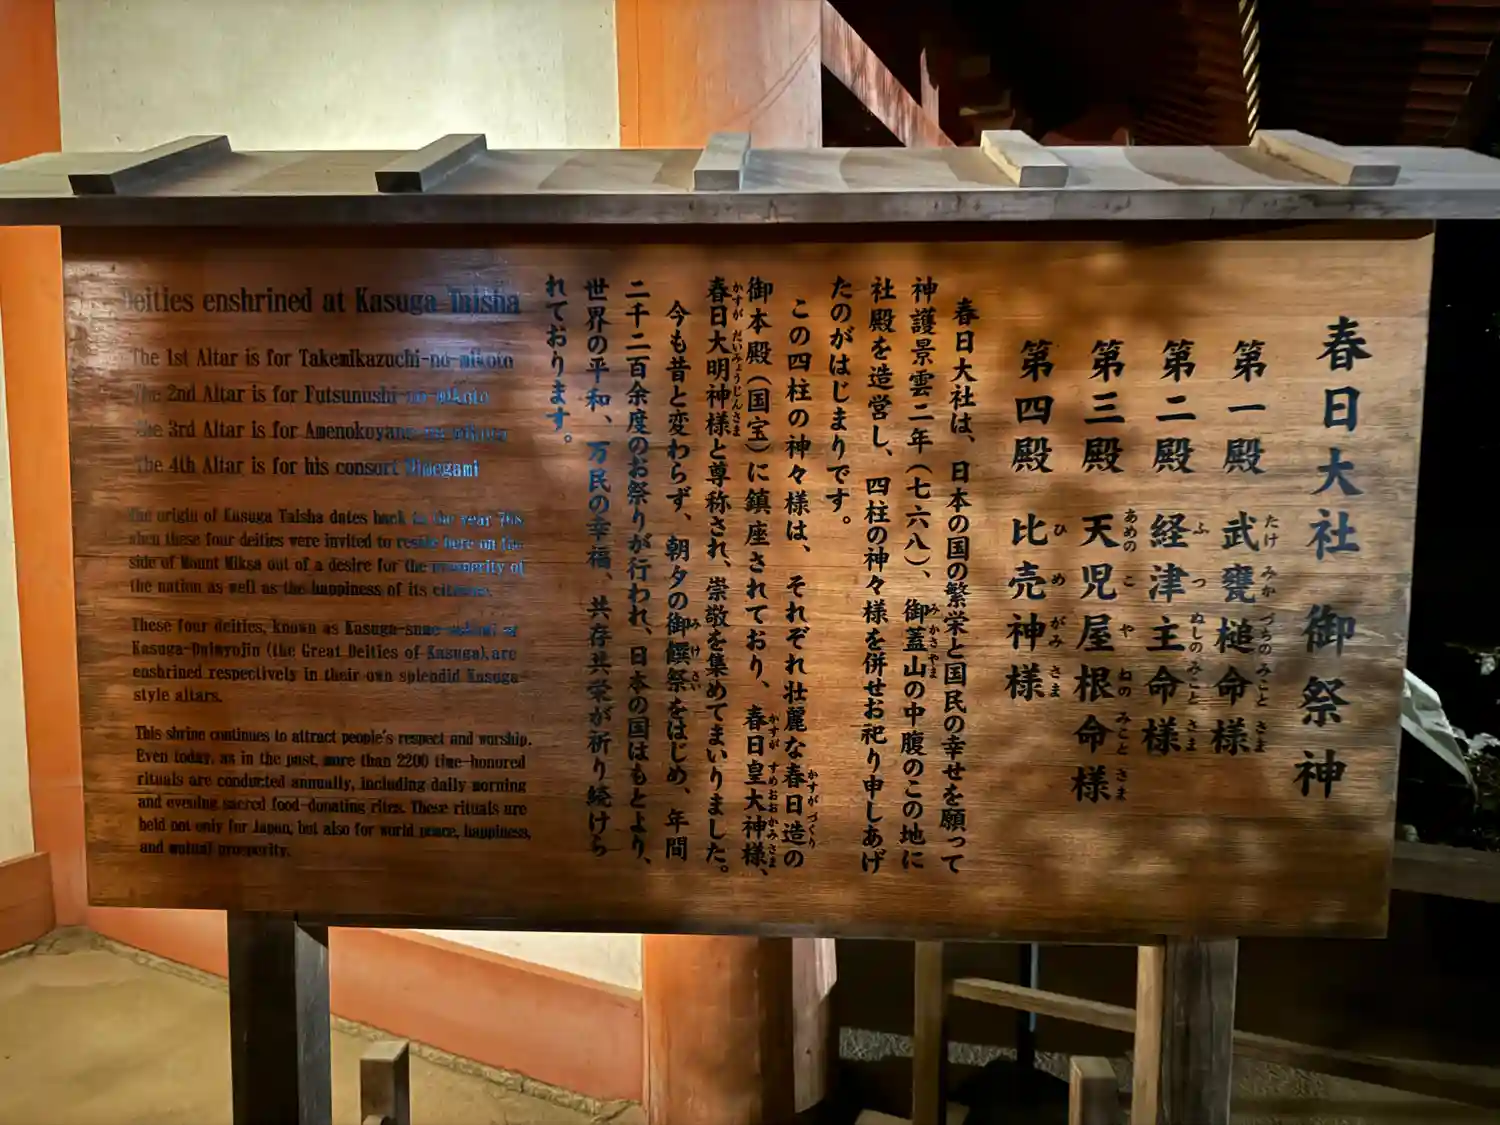 春日大社 御祭神
第一殿 武甕槌命様
たけ みか づちの みこと さま
第二殿 経津主命様
ふ つ ぬしの みこと さま
第三殿 天児屋根命様
あめの こ や ねの みこと さま
第四殿 比売神様
ひ め がみ さま
春日大社は、日本の国の繁栄と国民の幸せを願って
神護景雲二年(七六八)、御蓋山の中腹のこの地に
みかさやま
社殿を造営し、四柱の神々様を併せお祀り申しあげ
たのがはじまりです。
この四柱の神々様は、それぞれ壮麗な春日造の
かすがづくり
御本殿(国宝)に鎮座されており、春日皇大神様、
かすが すめおおかみさま
春日大明神様と尊称され、崇敬を集めてまいりました。
かすが だいみょうじんさま
今も昔と変わらず、朝夕の御饌祭をはじめ、年間
みけ さい
二千二百余度のお祭りが行われ、日本の国はもとより、
世界の平和、万民の幸福、共存共栄が祈り続けら
れております。
Deities enshrined at Kasuga Taisha
The 1st Altar is for Takemikazuchi-no-mikoto
The 2nd Altar is for Futsunushi-no-mikoto
The 3rd Altar is for Amenokoyane-no-mikoto
The 4th Altar is for his consort Himegami
The origin of Kasuga Taisha dates back to the year 768
when these four deities were invited to reside here on the
side of Mount Mikasa out of a desire for the prosperity of
the nation as well as the happiness of its citizens.
These four deities, known as Kasuga-sume-ookami or
Kasuga-Daimyojin (the Great Deities of Kasuga), are
enshrined respectively in their own splendid Kasuga-
style altars.
This shrine continues to attract people's respect and worship.
Even today, as in the past, more than 2200 time-honored
rituals are conducted annually, including daily morning
and evening sacred food-donating rites. These rituals are
held not only for Japan, but also for world peace, happiness,
and mutual prosperity.